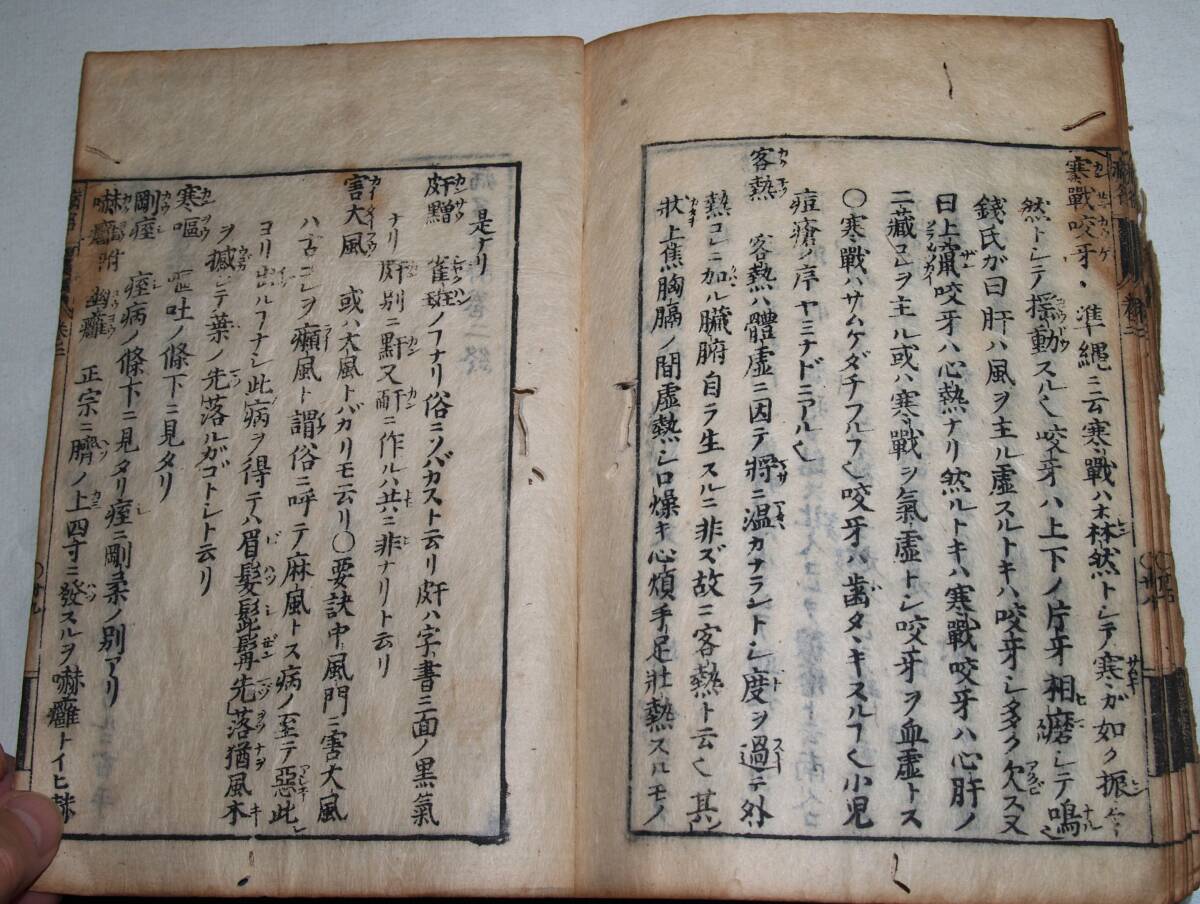 寒戰咬牙 準繩ニ云寒戰ハ森然トシテ寒が如ク振々
然トシテ搖動スル也咬牙ハ上下ノ片牙相磨シテ鳴也
錢氏が曰肝ハ風ヲ主ル虚スルトキハ咬牙シ多ク欠ス又
曰上竄咬牙ハ心熱ナリ然ルトキハ寒戰咬牙ハ心肝ノ
二藏コレヲ主ル或ハ寒戰ヲ氣虚トシ咬牙ヲ血虚トス
〇寒戰ハサムケダチフルフ也咬牙ハ齒タヽキスルフ也小児
痘瘡ノ序ヤミナドニアル也
客熱 客熱ハ體虚ニ因テ將ニ温カナラントシ度ヲ過テ外
熱コレニ加ル臓腑自ラ生スルニ非ズ故ニ客熱ト云也其
狀上焦胸膈ノ間虚熱シ口燥キ心煩手足壯熱スルモノ
是ナリ
皯䵳 雀斑ノフナリ俗ニソバカスト云リ皯ハ字書ニ面ノ黒氣
ナリ皯別ニ䵟又ニ作ルハ共ニ非ナリト云リ
害大風 或ハ大風トバカリモ云リ〇要訣中風門ニ害大風
ハ古コレヲ癩風ト謂俗ニ呼テ麻風トス病ノ至テ惡此
ヨリ出ルフナシ此病ヲ得テハ眉髪髭髯先落猶風木
ヲ撼シテ葉ノ先落ルガゴトシト云リ
寒嘔 嘔吐ノ條下ニ見タリ
剛痓 痓病ノ條下ニ見タリ痓ニ剛柔ノ別アリ
癰附 幽癰 正宗ニ臍ノ上四寸ニ發スルヲ癰トイヒ